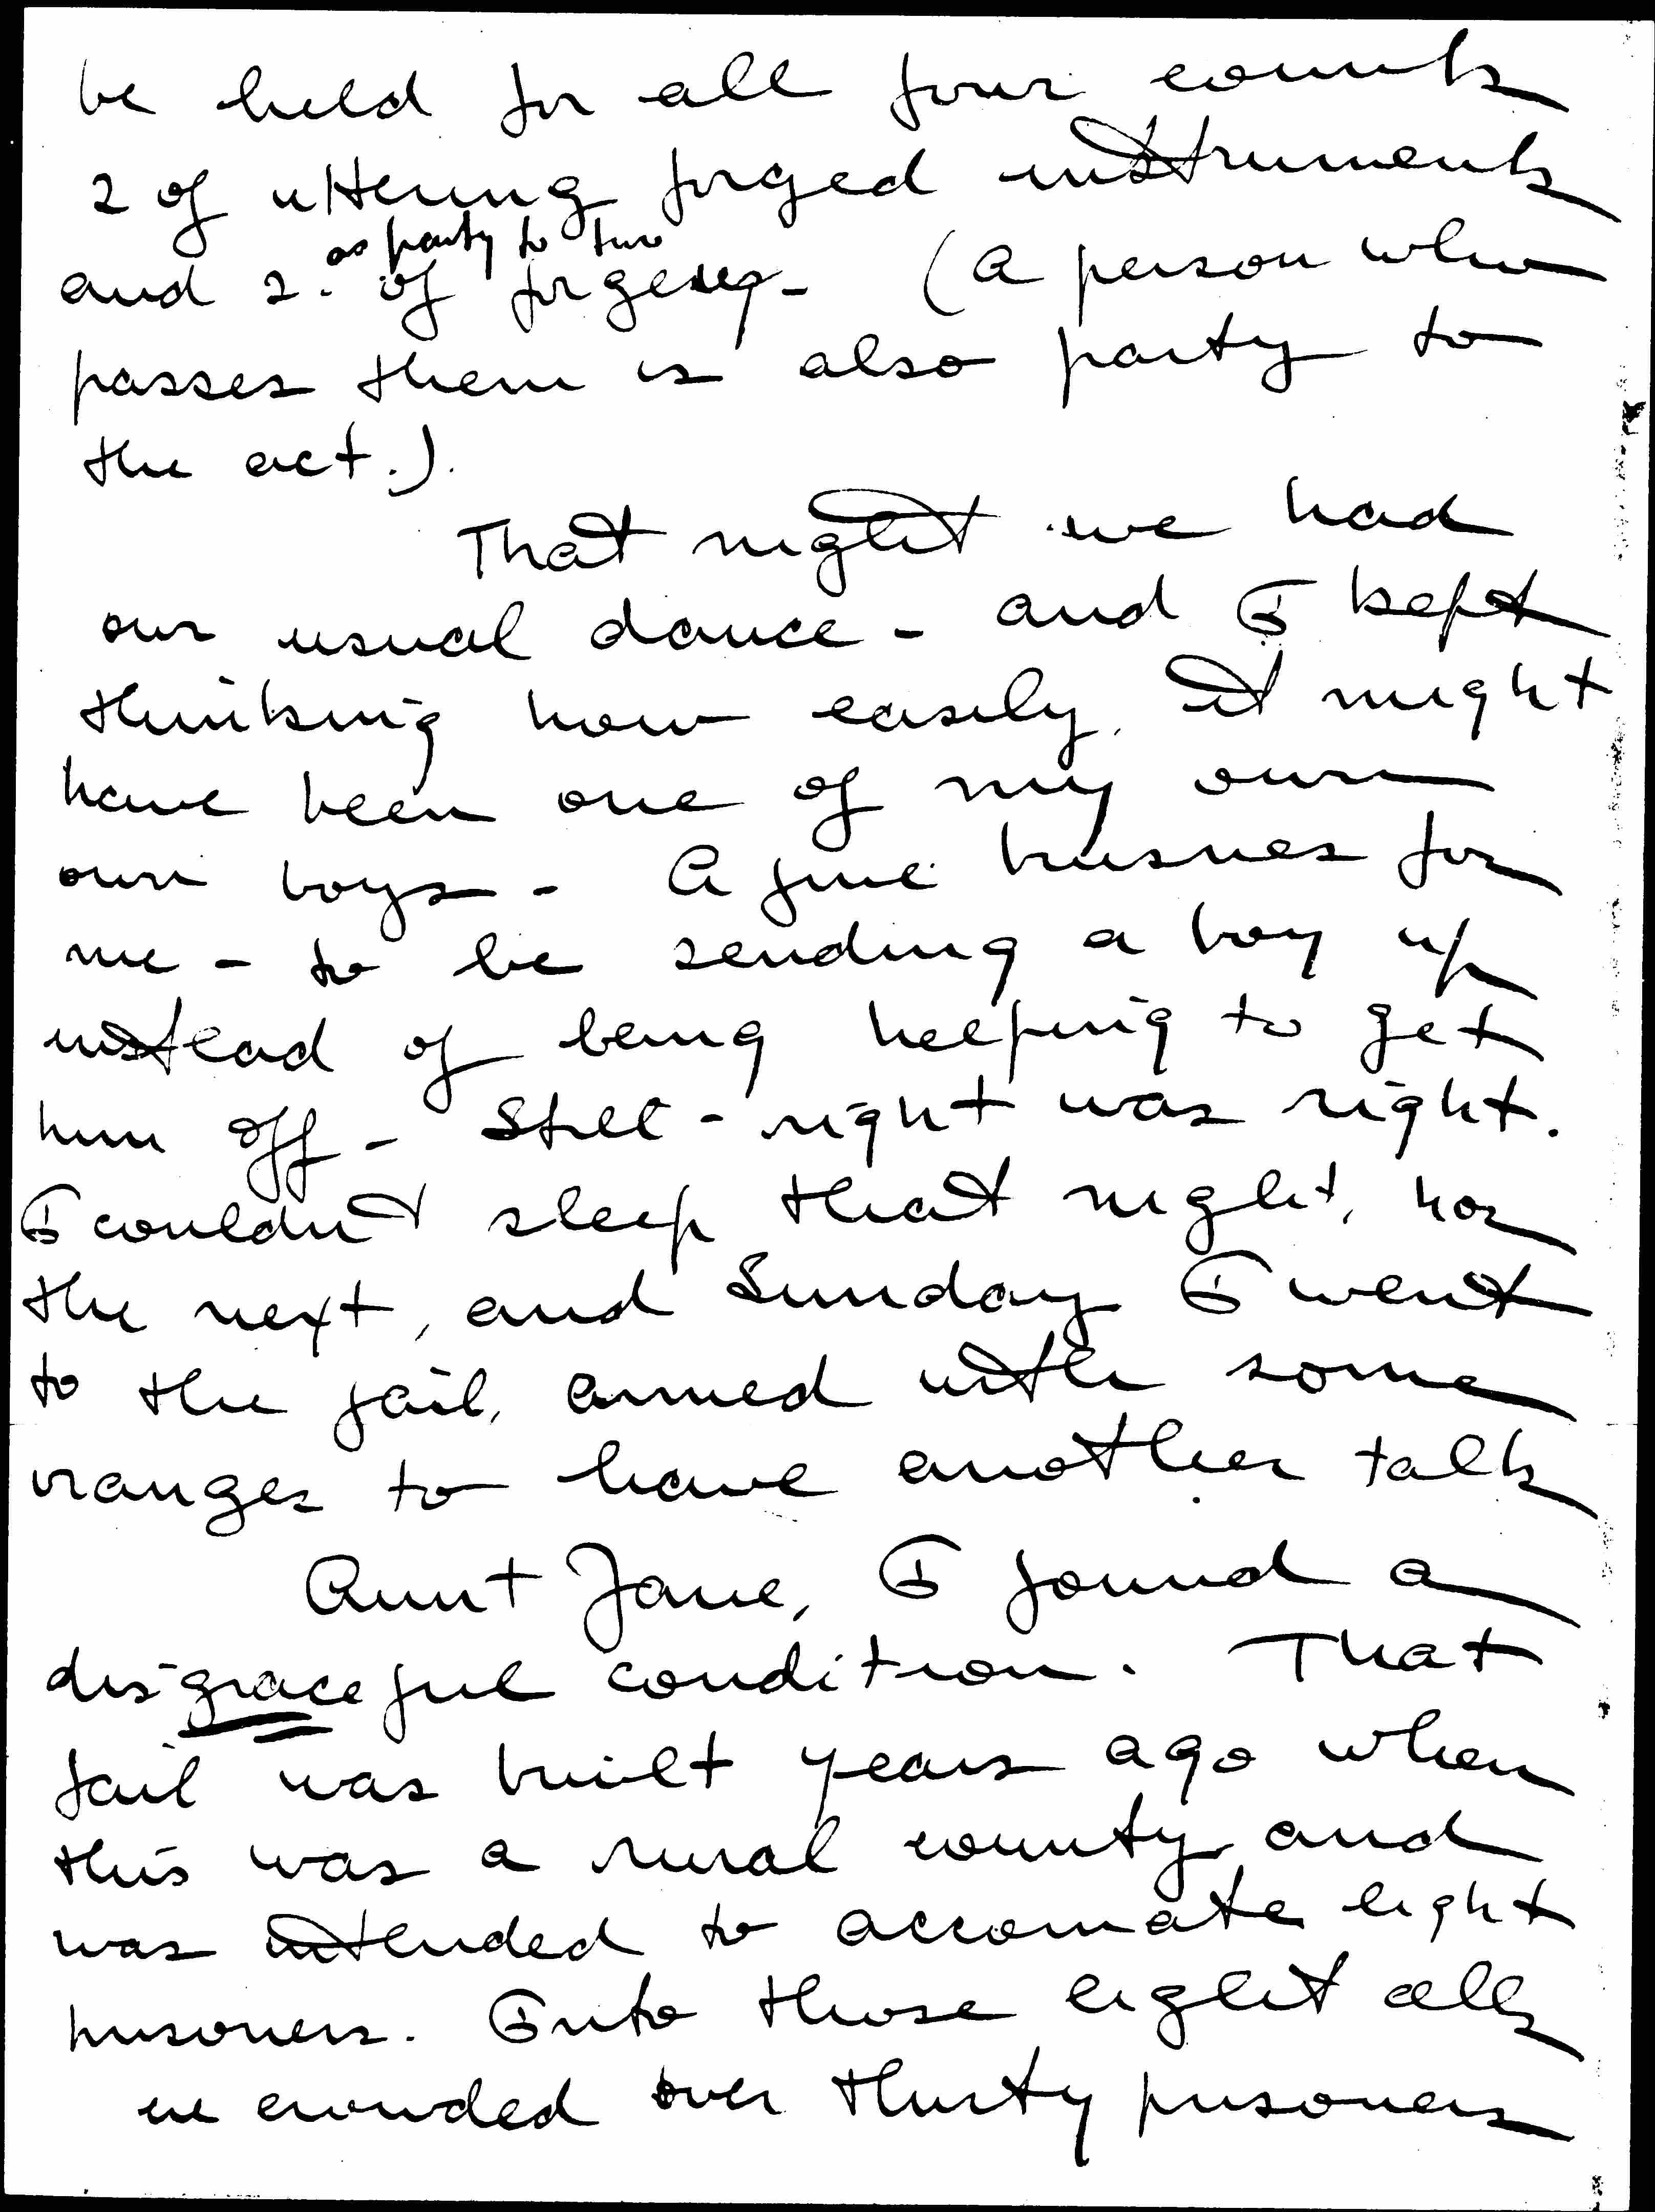 be held for all four counts
2 of uttering forged instruments
as party to two
and 2. of forgery - (a person who
passes them is also party to
the act.).
That night we had
our usual dance - and I kept
thinking how easily, it might
have been one of my own
own boys - A fine busines for
me - to be sending a boy up
instead of being helping to get
him off - Still - right was right.
I couldn't sleep that night, nor
the next, and Sunday I went
to the jail, armed with some
oranges to have another talk
Aunt Jane, I found a
disgraceful condition. That
jail was built years ago when
this was a rural county and
was intended to accomate eight
prisoners. Into those eight cells
we crowded over thirty prisoners